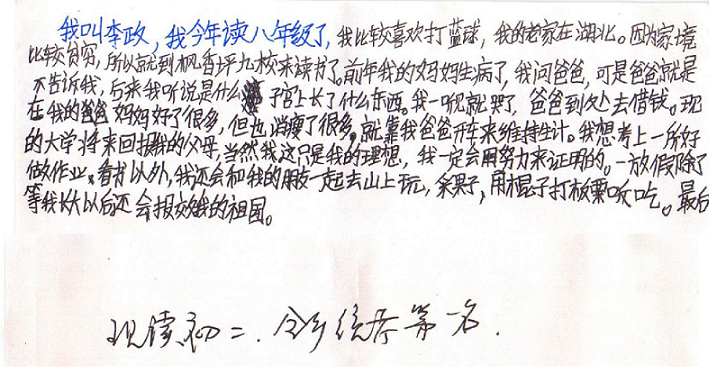 我叫李政，我今年读八年级了，我比较喜欢打蓝球，我的老家在湖北。因为家境
比较贫穷，所以就到枫香坪九校来读书了。前年我的妈妈生病了，我问爸爸，可是爸爸就是
不告诉我，后来我听说是什么子宫上长了什么东西。我一听就哭了，爸爸到处去借钱。现
在我的爸爸妈妈好了很多，但也消瘦了很多，就靠我爸爸开车来维持生计。我想考上一所好
的大学将来回报我的父母，当然我这只是我的理想，我一定会用努力来证明的。一放假除了
做作业，看书以外，我还会和我的朋友一起去山上玩，采果子，用棍子打板栗吃。最后
等我长大以后还会报效我的祖国。
现读初二．全乡统考第一名．